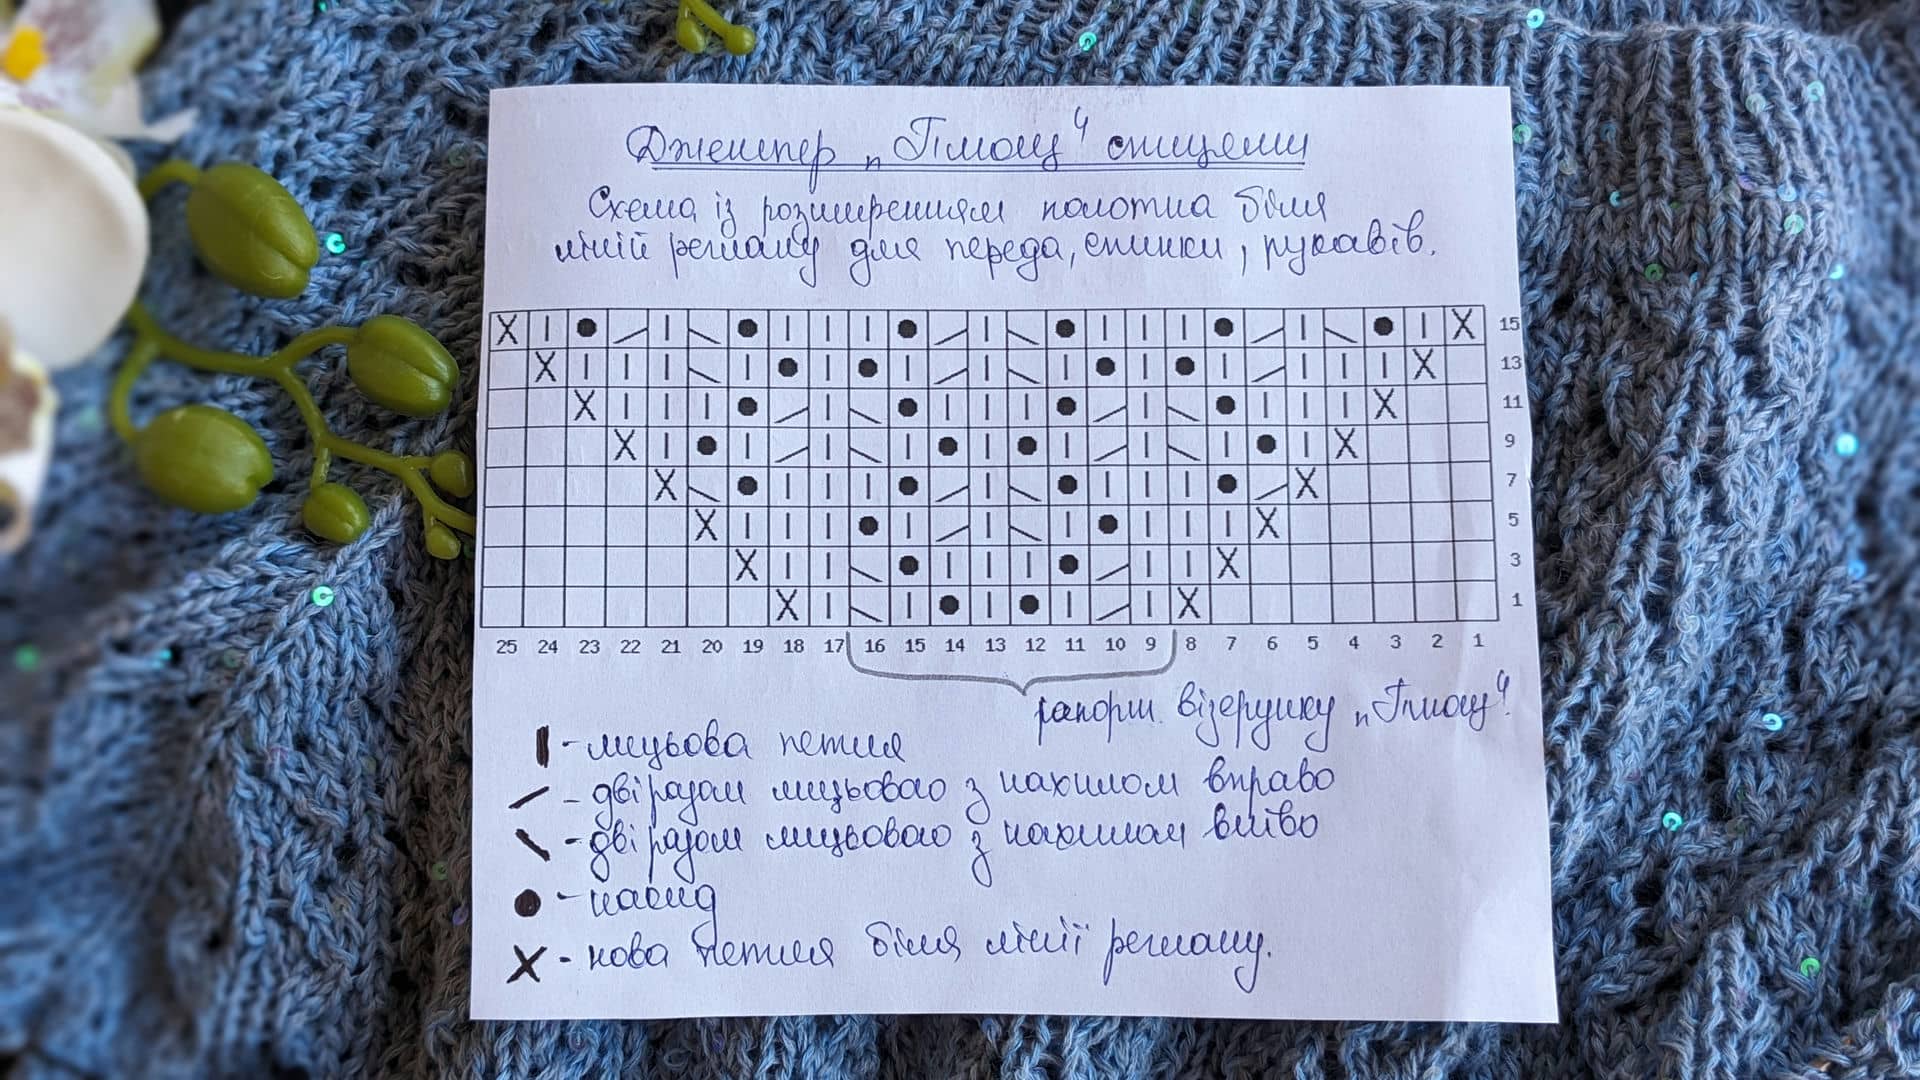 Джемпер „Плющ“ спицями
Схема із розширенням полотна біля
ліній реглану для переда, спинки, рукавів.
15
13
11
9
7
5
3
1
25 24 23 22 21 20 19 18 17 16 15 14 13 12 11 10 9 8 7 6 5 4 3 2 1
рапорт візерунку „Плющ“.
- лицьова петля
- дві разом лицьовою з нахилом вправо
- дві разом лицьовою з нахилом вліво
- накид
X - нова петля біля лінії реглану.